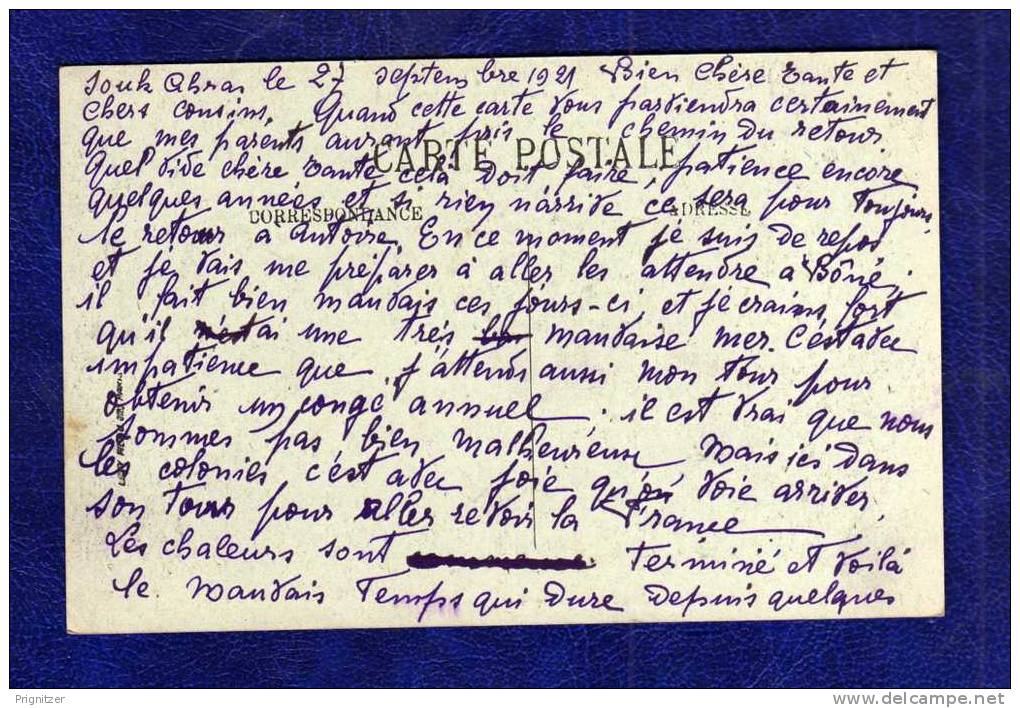 Souk Ahras le 27 septembre 1921 Bien Chère tante et
chers cousins, Quand cette carte vous parviendra certainement
que mes parents auront pris le chemin du retour.
CARTE POSTALE
Quel vide chère tante celà doit faire, patience encore
quelques années et si rien n'arrive ce sera pour toujours
CORRESPONDANCE ADRESSE
le retour à Antoire. En ce moment je suis de repos
et je vais me préparer à aller les attendre à Bône,
il fait bien mauvais ces jours-ci, et je crains fort
qu'il ai une très mauvaise mer. C'est avec
impatience que j'attends aussi mon tour pour
obtenir un congé annuel. il est vrai que nous
sommes pas bien malheureuse Mais ici dans
les colonies c'est avec joie qu'on voie arriver
son tour pour aller revoir la France
Les chaleurs sont terminé et voilà
le mauvais temps qui dure depuis quelques
Prignitzer
www.delcampe.net